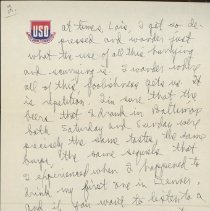 2.
USO
at times, Lois, I get so de-
pressed and wonder just
what the use of all this hurrying
and scurrying is. I wonder where
all of this foolishness gets us. It
is repetition. I'm sure that the
beer that I drank in
both Saturday and Sunday were
precisely the same tastes, the same
the same that
I experienced when I happened to
drink my first one in Denver,
and if you want to listen to a